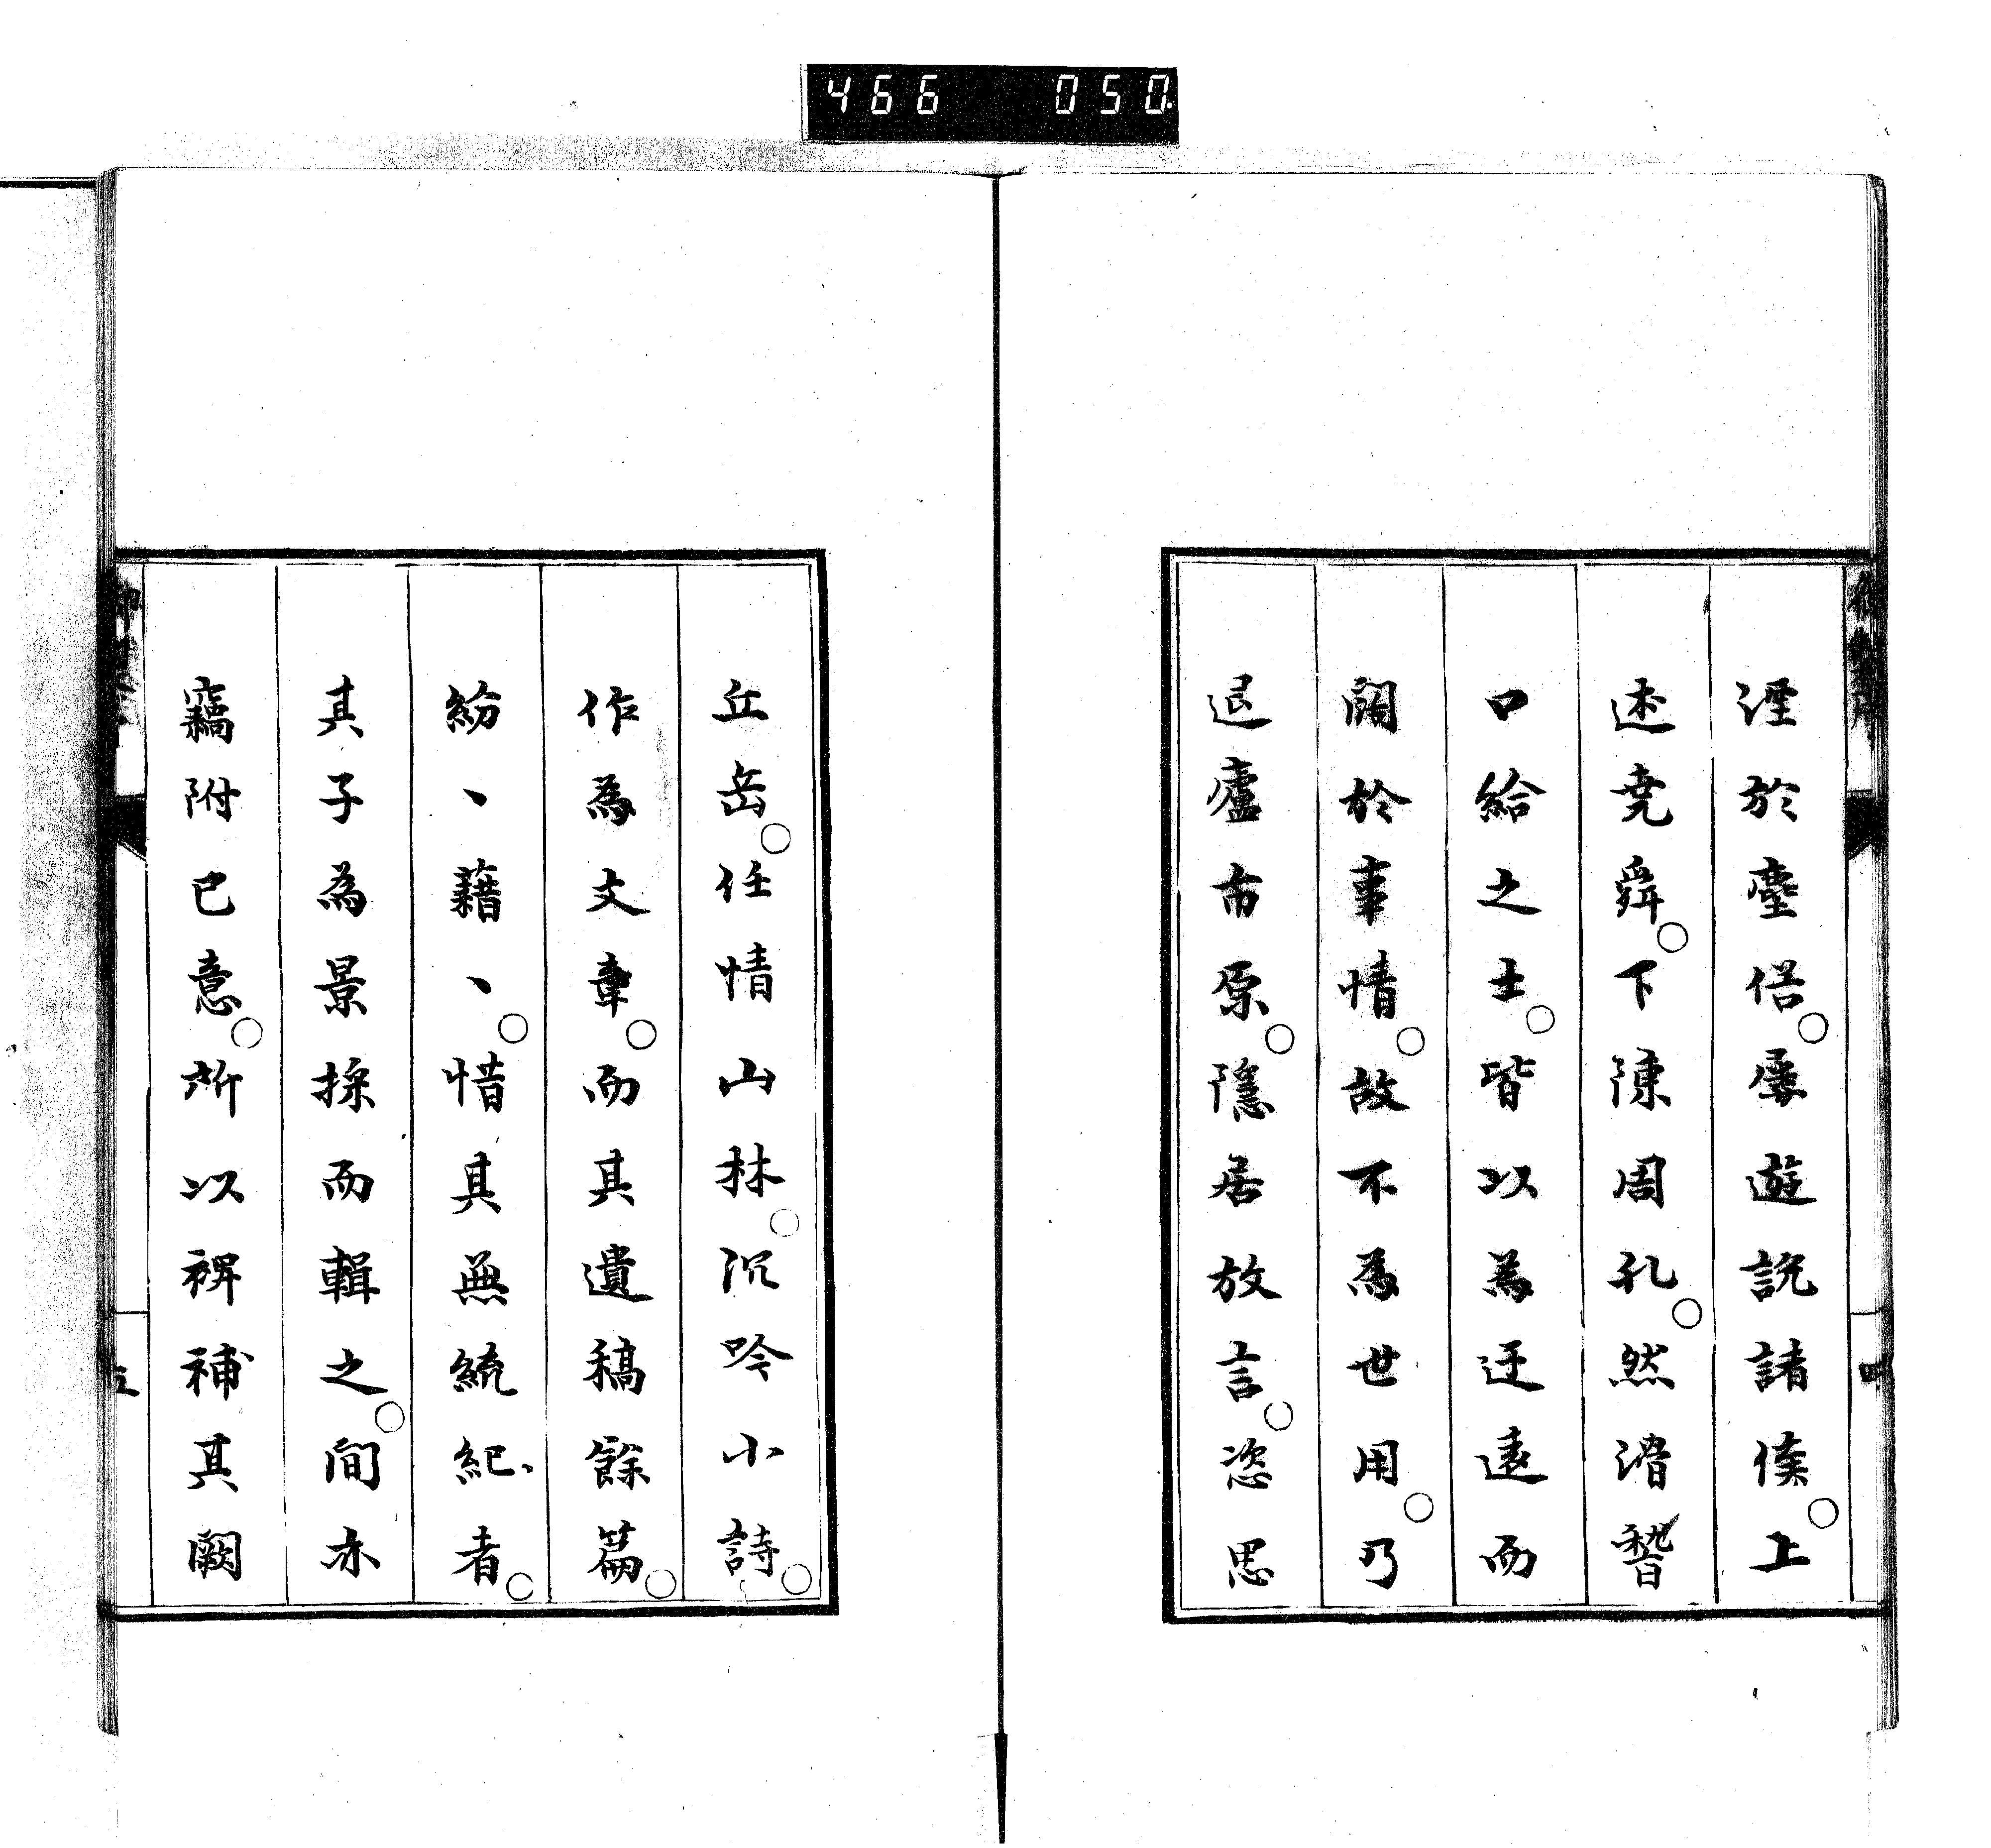 466 050
湮於塵俗○屢遊說諸侯○上
述堯舜○下陳周孔○然滑稽
口給之士○皆以為迂遠而
闊於事情○故不為世用○乃
退廬市原○隱居放言○恣思
四
丘岳○任情山林○沉吟小詩○
作為文章○而其遺稿餘篇○
紛〻藉〻○惜其無統紀者○
其子為景採而輯之○間亦
竊附己意○所以裨補其闕